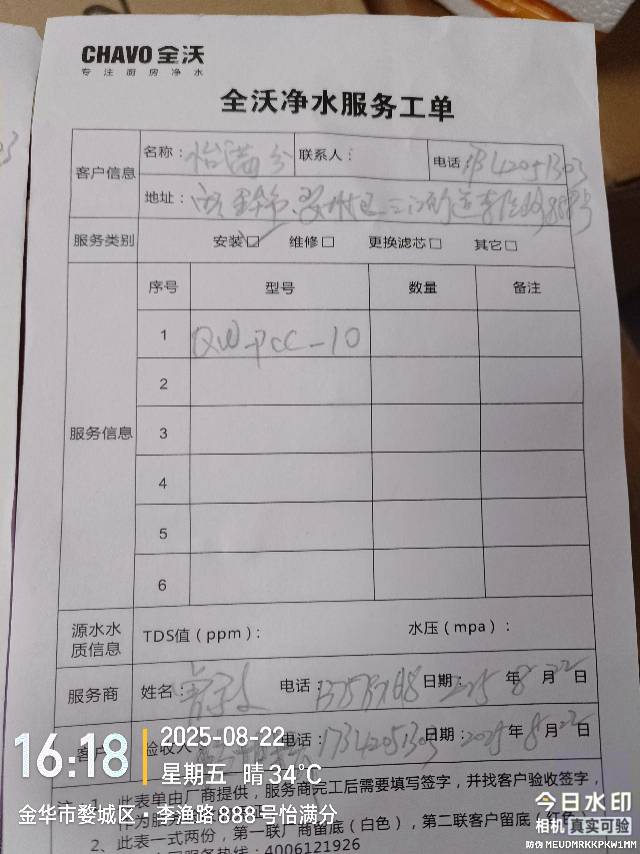 CHAVO 全沃
专注厨房净水
全沃净水服务工单
客户信息
名称：怡满分 联系人： 电话：17342051303
地址：
服务类别 安装☑ 维修□ 更换滤芯□ 其它□
服务信息
序号 型号 数量 备注
1 QW-PCC-10
2
3
4
5
6
源水水质信息 TDS值（ppm）： 水压（mpa）：
服务商 姓名： 电话： 日期：2025年8月22日
客户 验收人 电话：17342051303 日期：2025年8月22日
1、此表单由厂商提供，服务商完工后需要填写签字，并找客户验收签字，
作为服务
2、此表一式两份，第一联厂商留底（白色），第二联客户留底（红色）
服务热线：4006121926
16:18
2025-08-22
星期五 晴 34℃
金华市婺城区·李渔路888号怡满分
今日水印
相机 真实可验
防伪 MEUDMRKKPKW1MM